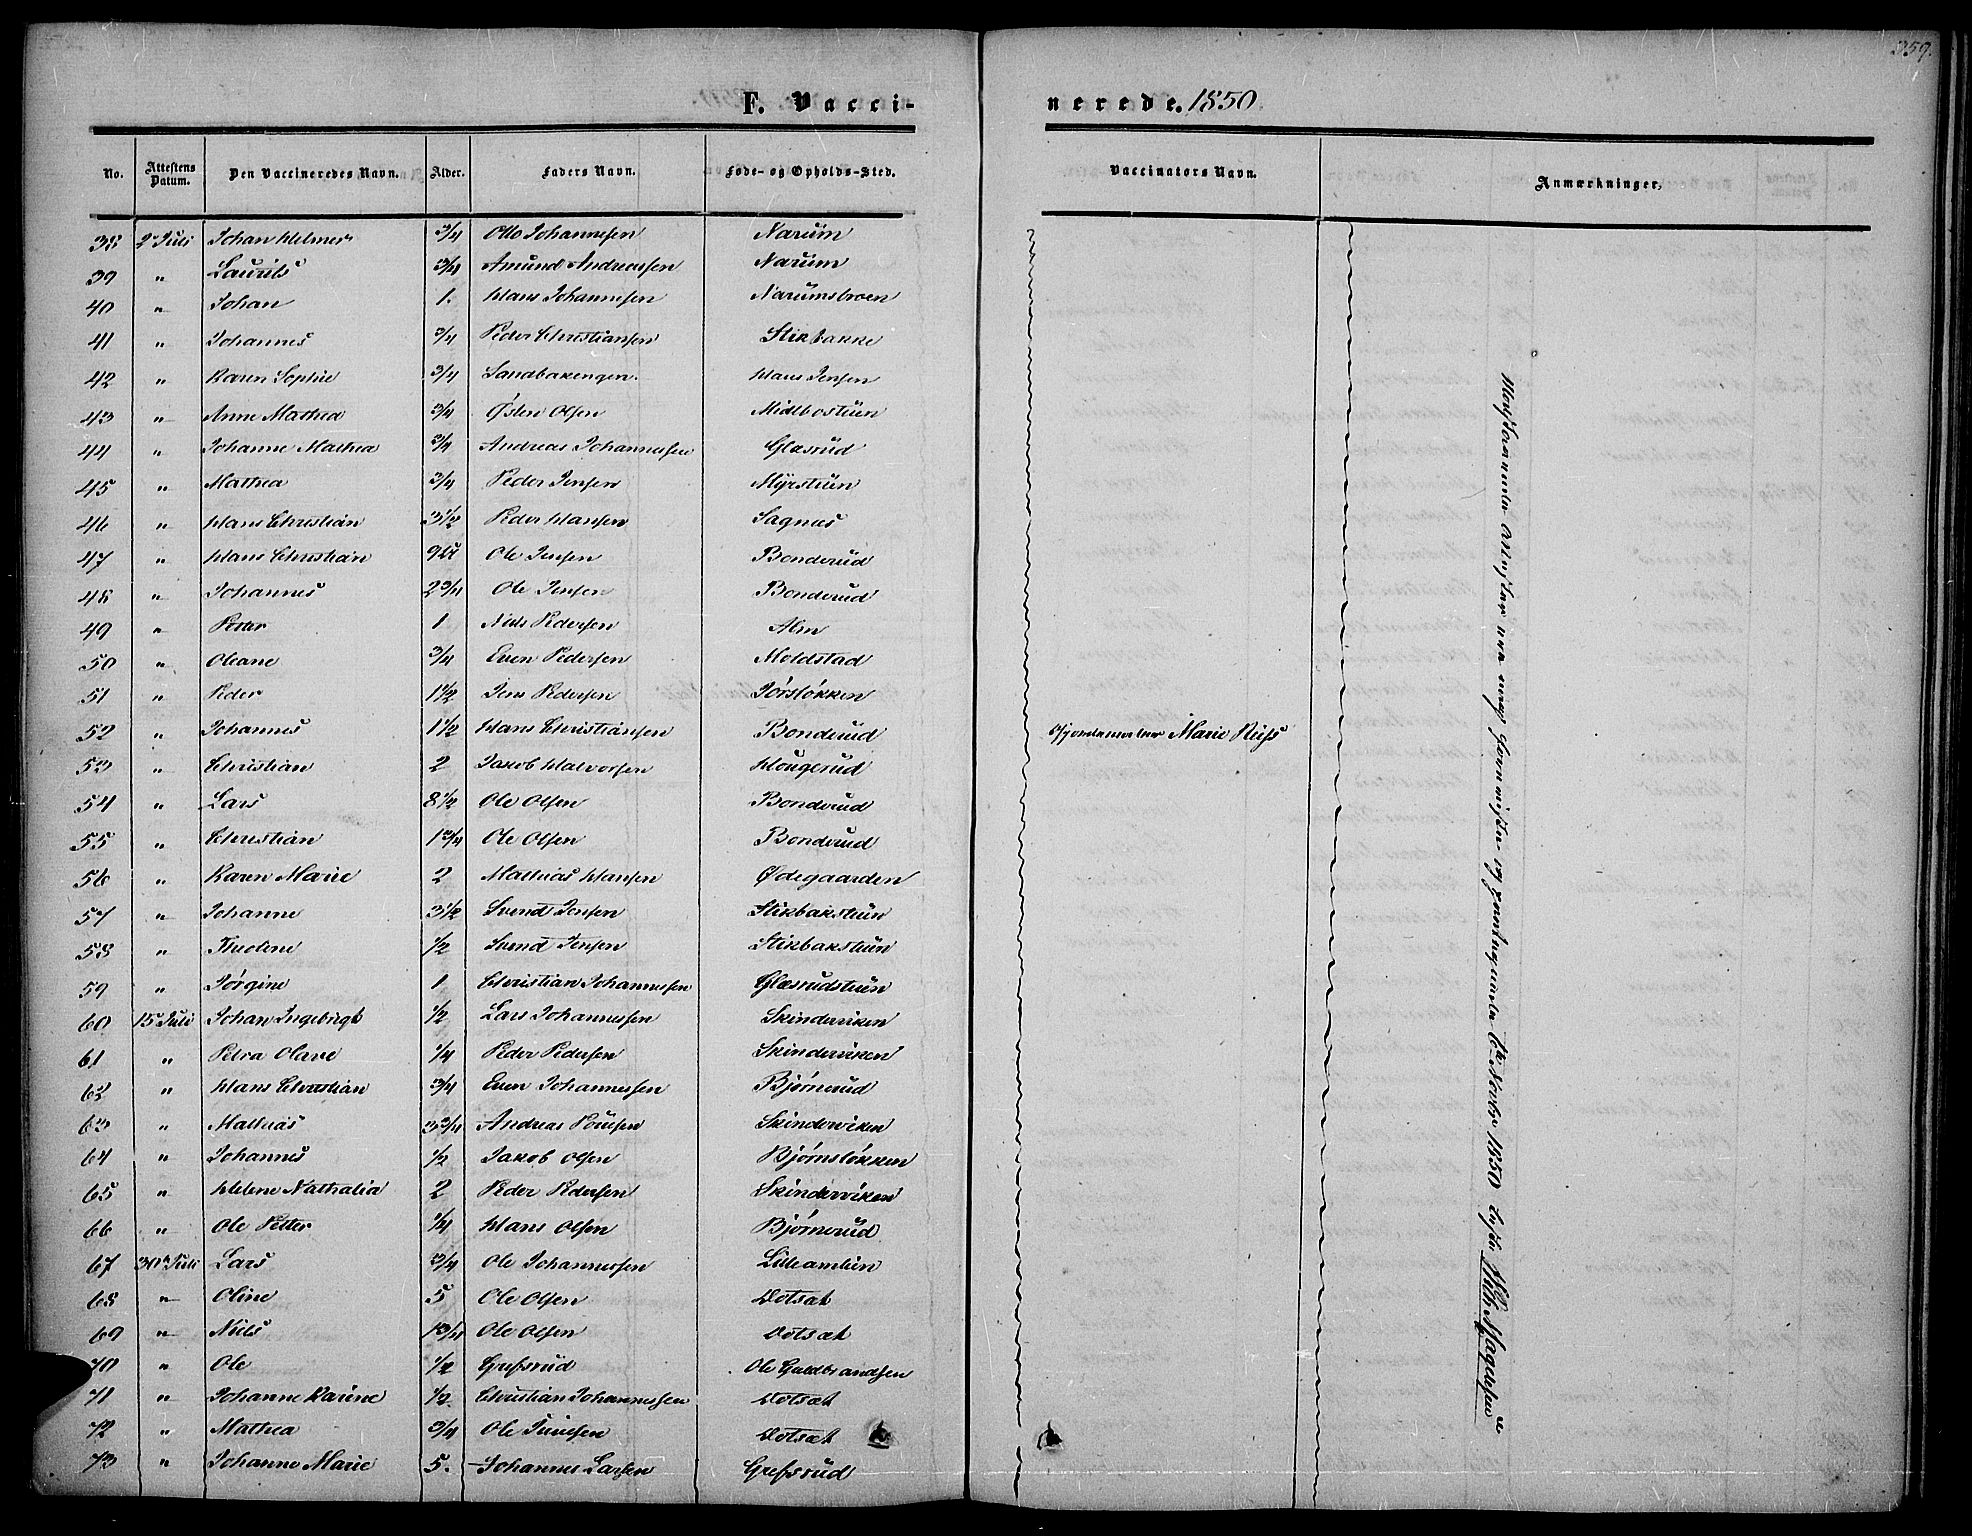 359.
F. Vacci-
nerede. 1850
No. Attestens Datum. Den Vaccineredes Navn. Alder. Faders Navn. Føde- og Opholds-Sted. Vaccinators Navn. Anmærkninger.
38 2 Juli Johan Helmer 3/4 Otto Johannesen Narum
39 " Laurits 3/4 Amund Andreassen Narum
40 " Johan 1. Hans Johannesen Narumsbroen
41 " Johannes 3/4 Peder Christiansen Stikbakke
42 " Karen Sophie 3/4 Sandbakengen. Hans Jensen
43 " Anne Mathea 3/4 Østen Olsen Midtbostuen
44 " Johanne Mathea 3/4 Andreas Johannessen Glæsrud
45 " Mathea 3/4 Peder Jensen Myrstuen
46 " Hans Christian 3 1/2 Peder Hansen Sagnes
47 " Hans Christian 9 Ole Jensen Bonderud
48 " Johannes 2 3/4 Ole Jensen Bonderud
49 " Petter 1 Niels Pedersen Alm
50 " Oleane 3/4 Even Pedersen Moldstad
51 " Peder 1 1/2 Jens Pedersen Jørsløkken
52 " Johannes 1 1/2 Hans Christiansen Bonderud Marie Riis
53 " Christian 2 Jakob Halvorsen Hougerud
54 " Lars 8 1/2 Ole Olsen Bonderud
55 " Christian 1 3/4 Ole Olsen Bonderud
56 " Karen Marie 2 Mathias Hansen Ødegaarden
57 " Johanne 3 1/2 Svend Jensen Stikbakstuen
58 " Theoline 1/2 Svend Jensen Stikbakstuen
59 " Jørgine 1 Christian Johannessen Glæsrudstuen
60 15 Juli Johan Ingebrigt 1/2 Lars Johannessen Skinderviken
61 " Petra Olave 1/4 Peder Pedersen Skinderviken
62 " Hans Christian 3/4 Even Johannessen Bjørnerud
63 " Mathias 3 3/4 Andreas Poulsen Skinderviken
64 " Johannes 1/2 Jakob Olsen Bjørnsløkken
65 " Helene Nathalia 2 Peder Pedersen Skinderviken
66 " Ole Petter 1/4 Hans Olsen Bjørnerud
67 30 Juli Lars 3/4 Ole Johannessen Lilleamlien
68 " Oline 5 Ole Olsen Votsæt
69 " Niels 1 3/4 Ole Olsen Votsæt
70 " Ole 1/2 Grefsrud Ole Guldbrandsen
71 " Johanne Karine 1/2 Christian Johannessen Votsæt
72 " Mathea 3/4 Ole Votsæt
73 " Johanne Marie 5. Johannes Larsen Grefsrud
1850